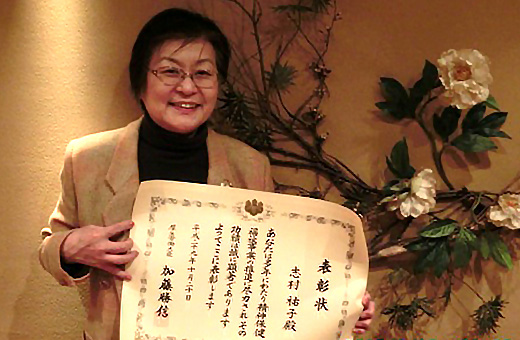 表彰状
志村 祐子殿
あなたは多年にわたり精神保健
福祉事業の推進に尽力されその
功績は誠に顕著であります
よってここに表彰します
平成二十九年十月二十日
厚生労働大臣 加藤勝信